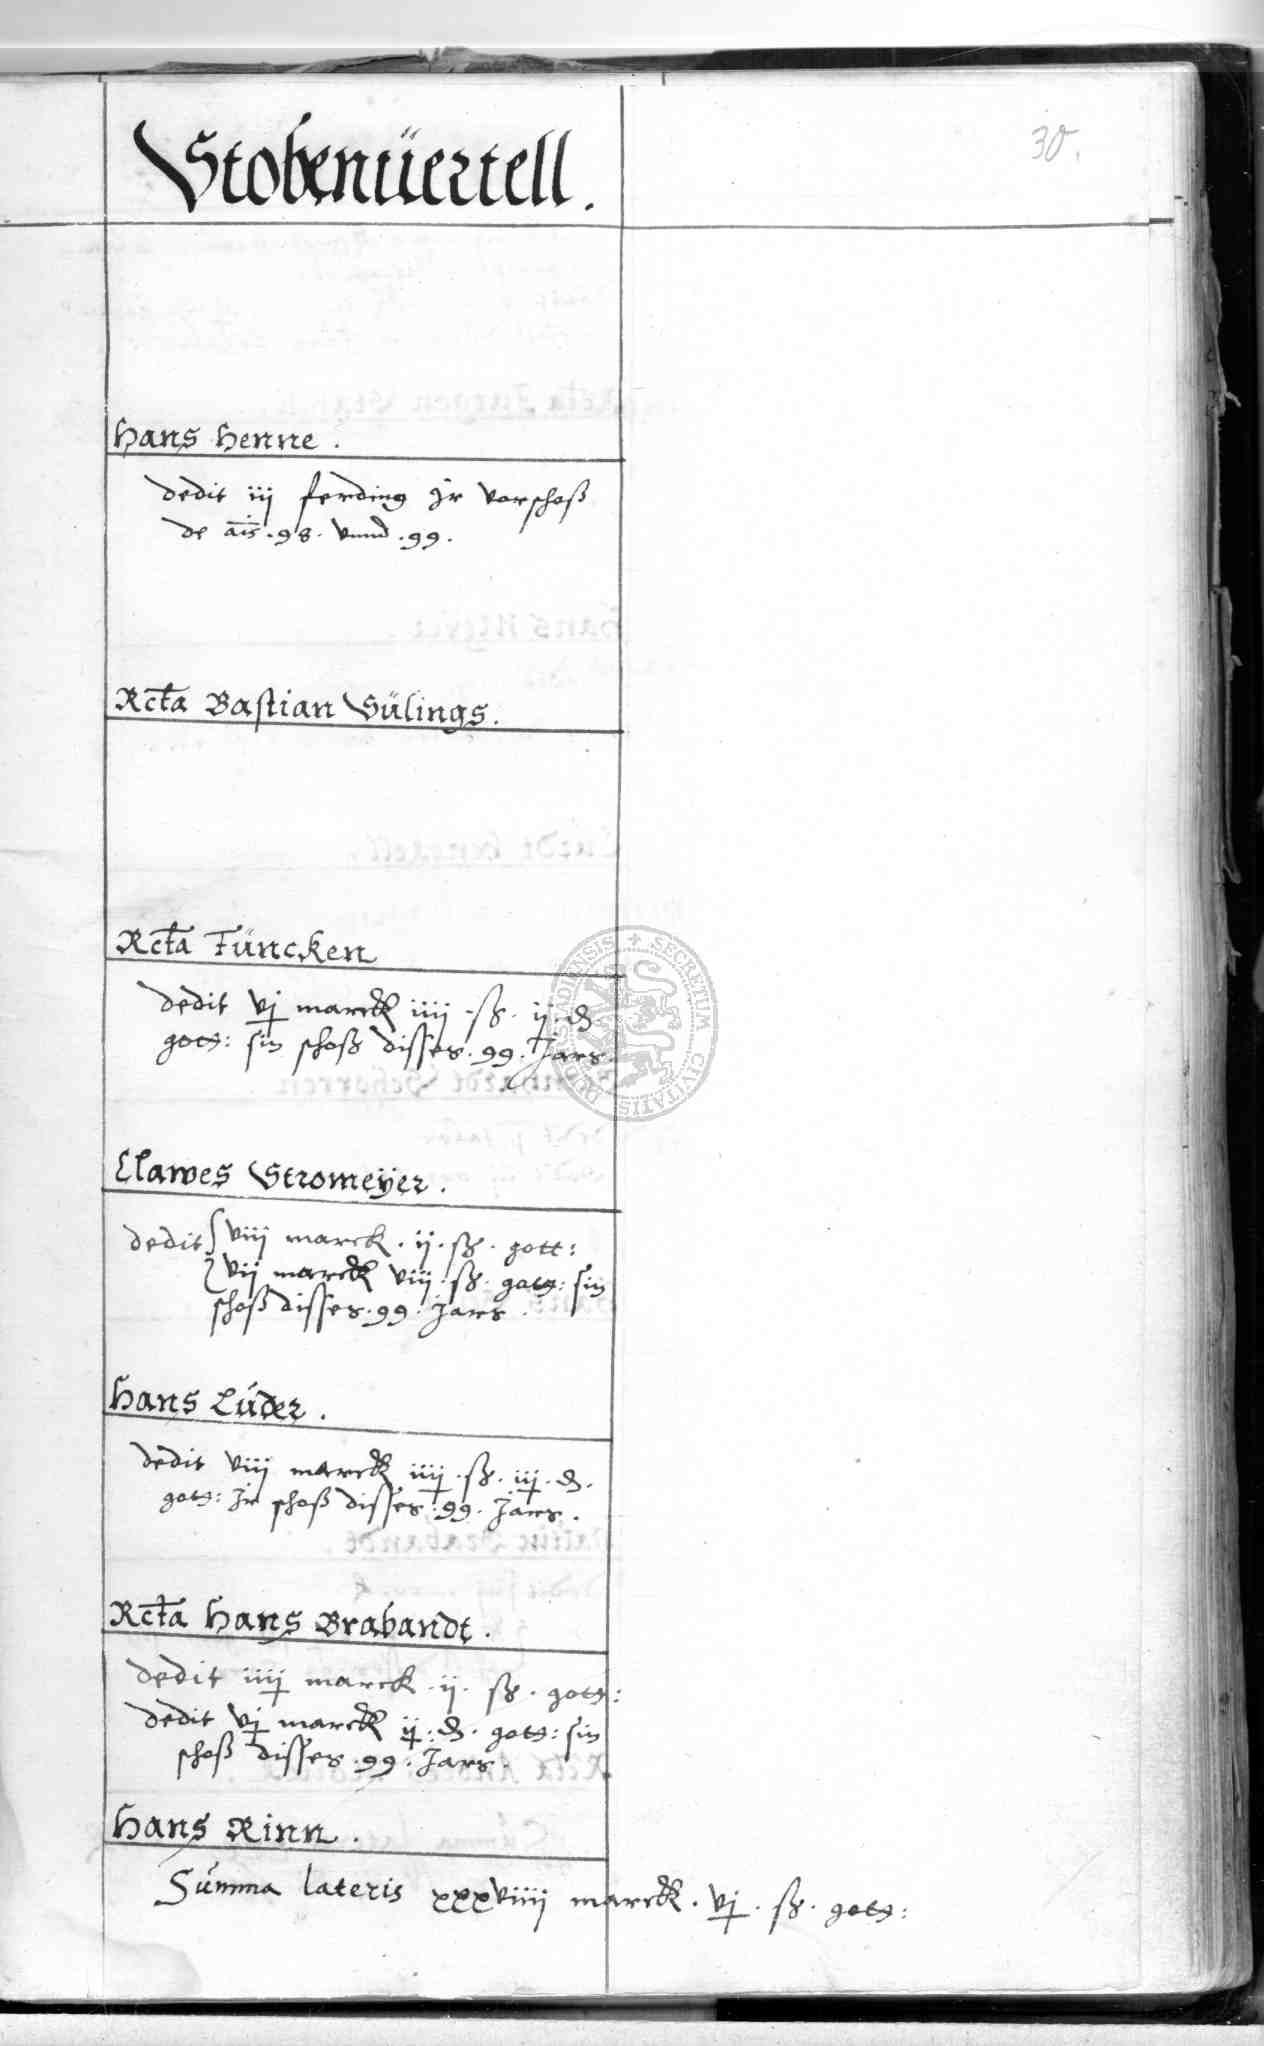 30.
Stobenüertell.
Hans Henne.
dedit iij ferding jr vorschoß
de ais . 98 . vnnd . 99 .
Rcta Bastian Sülings.
Rcta Füncken
dedit vj marck iiij . ß . ij . ₰
gotg: sin schoß disses . 99 . Jars
Clawes Stromeÿer.
dedit viij marck . ij . ß . gott:
vij marck viij . ß . gotg: sin
schoß disses . 99 . Jars .
Hans Lúder.
dedit viij marck iiij . ß . iij . ₰.
gotg: jr schoß disses . 99 . Jars .
Rcta Hans Brabandt.
dedit iiij marck . ij . ß . gotg:
dedit vj marck ij . ₰ . gotg: sin
schoß disses . 99 . Jars .
Hans Rinn.
Súmma lateris xxxviiij marck . vj . ß . gotg:
SECRETUM CIVITATIS DUDERSTADIENSIS